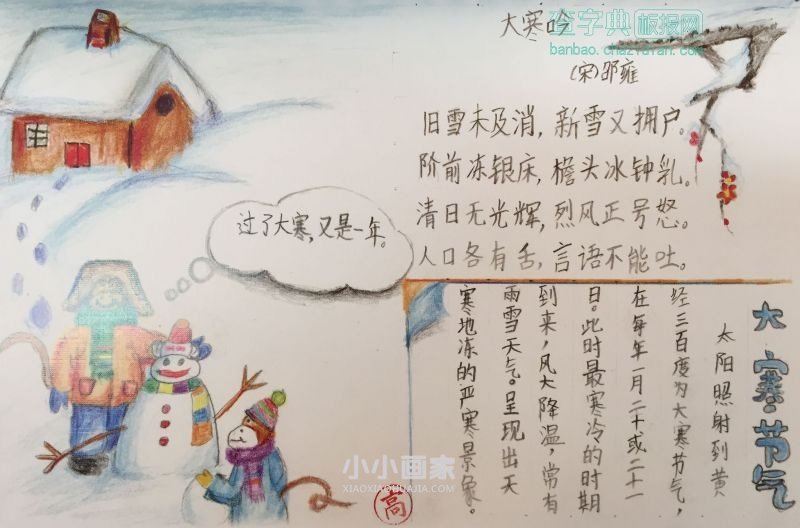 大寒吟
查字典 板报网
banbao.chazidian.com
(宋)邵雍
旧雪未及消，新雪又拥户。
阶前冻银床，檐头冰钟乳。
清日无光辉，烈风正号怒。
人口各有舌，言语不能吐。
过了大寒，又是一年。
大寒节气
太阳照射到黄
经三百度为大寒节气，
在每年一月二十或二十一
日。此时最寒冷的时期
到来，风大降温，常有
雨雪天气。呈现出天
寒地冻的严寒景象。
小小画家
XIAOXIAOHUAJIA.COM
高